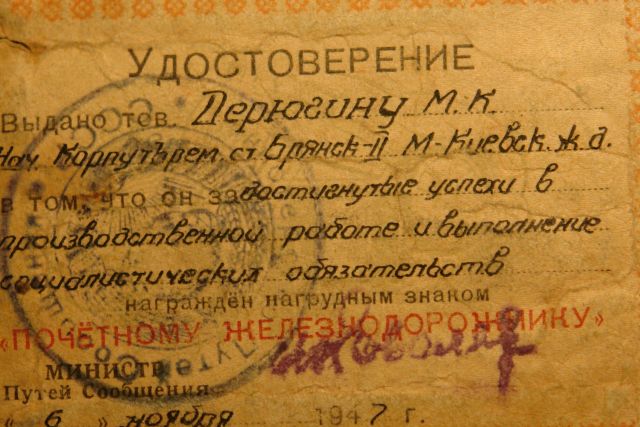 УДОСТОВЕРЕНИЕ
Выдано тов. Дерюгину М.К
Нач. Карпутърем. ст Брянск-II М-Киевск ж д.
в том, что он за достигнутые успехи в
производственной работе и выполнение
социалистических обязательств
награждён нагрудным знаком
«ПОЧЁТНОМУ ЖЕЛЕЗНОДОРОЖНИКУ»
МИНИСТР
Путей Сообщения
« 6 » ноября 1947 г.